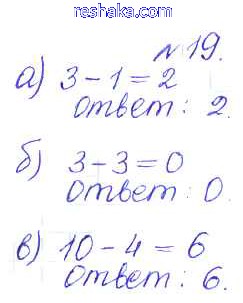 reshaka.com
№19.
а) 3-1=2
Ответ: 2.
б) 3-3=0
Ответ: 0.
в) 10-4=6
Ответ: 6.